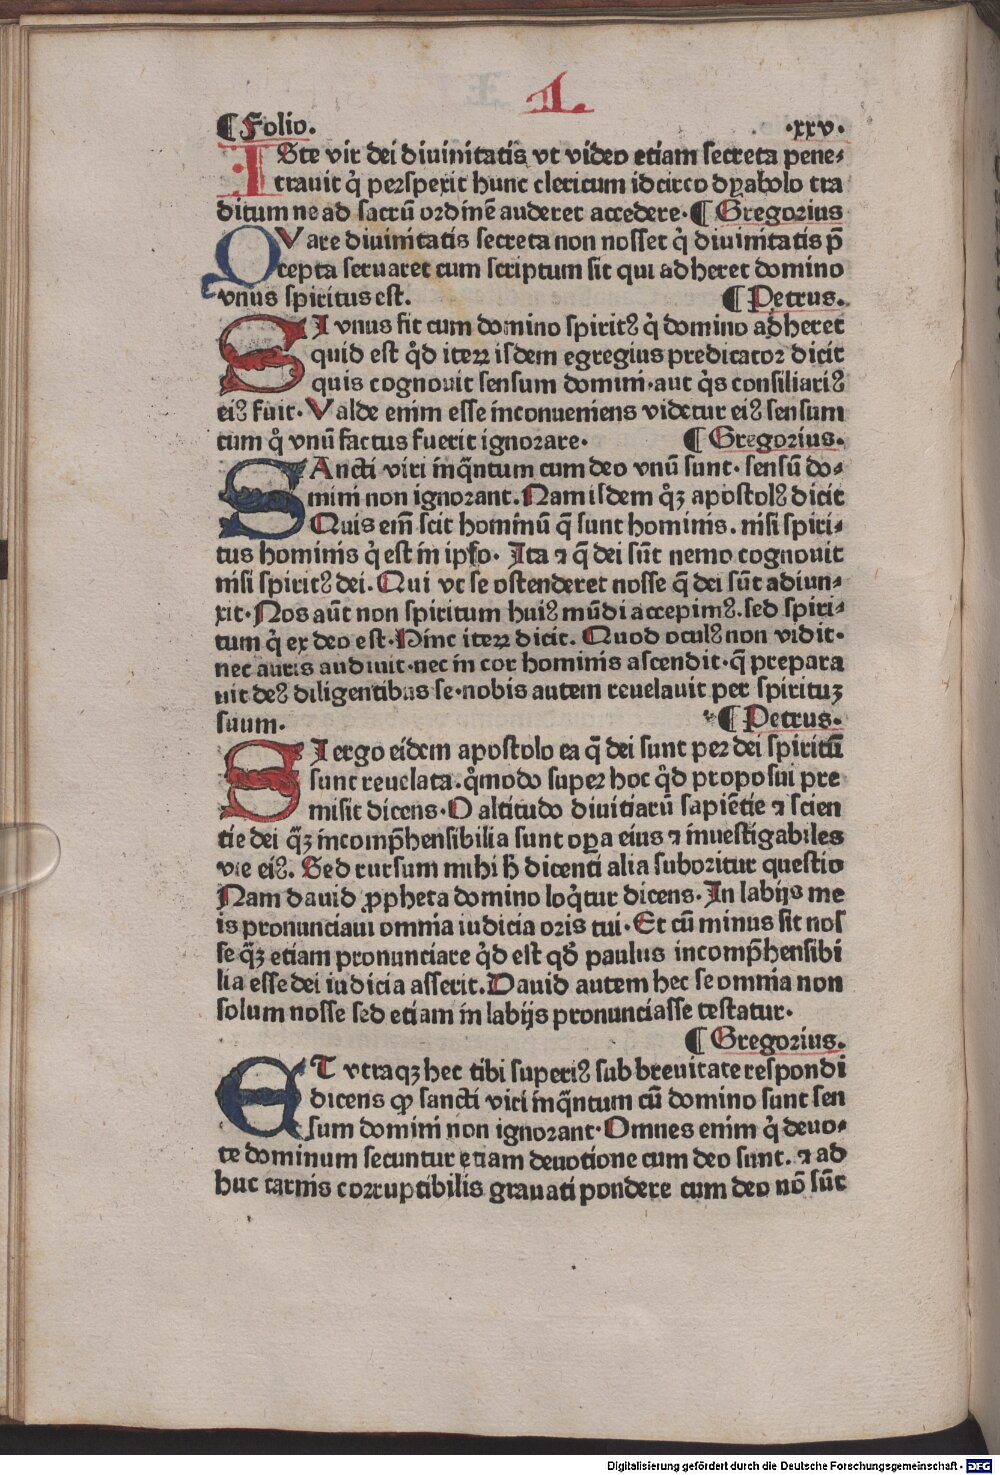 L
¶ Folio. ·xxv·
ISte vir dei diuinitatis vt video etiam secreta pene⸗
trauit q̇ perspexit hunc clericum idcirco dyabolo tra
ditum ne ad sacrū ordinē auderet accedere· ¶ Gregorius
QVare diuinitatis secreta non nosset q̇ diuinitatis p̄
cepta seruaret cum scriptum sit qui adheret domino
vnus spiritus est. ¶ Petrus.
SI vnus fit cum domino spiritꝰ q̇ domino adheret
quid est q̇d iteꝝ isdem egregius predicator dicit
quis cognouit sensum domini·aut q̇s consiliariꝰ
eiꝰ fuit· Valde enim esse inconueniens videtur eiꝰ sensum
cum q̊ vnū factus fuerit ignorare· ¶ Gregorius.
SAncti viri inq̄ntum cum deo vnū sunt· sensū do⸗
mini non ignorant. Nam isdem q̊ꝫ apostolꝰ dicit
Quis em̄ scit hominū q̄ sunt hominis. nisi spiri⸗
tus hominis q̇ est in ipso· Ita ⁊ q̄ dei sūt nemo cognouit
nisi spiritꝰ dei. Qui vt se ostenderet nosse q̄ dei sūt adiun⸗
xit· Nos aūt non spiritum huiꝰ mūdi accepimꝰ. sed spiri⸗
tum q̇ ex deo est· Hinc iteꝝ dicit. Quod oculꝰ non vidit·
nec auris audiuit·nec in cor hominis ascendit·q̄ prepara
uit deꝰ diligentibus se·nobis autem reuelauit per spirituꝫ
suum. ¶ Petrus.
SI ergo eidem apostolo ea q̄ dei sunt per dei spiritū
sunt reuelata. q̊modo super hoc q̇d proposui pre
misit dicens· O altitudo diuitiarū sapiētie ⁊ scien
tie dei q̄ꝫ incomp̄hensibilia sunt oꝑa eius ⁊ inuestigabiles
vie eiꝰ. Sed rursum mihi h̄ dicenti alia suboritur questio
Nam dauid ꝓpheta domino loq̇tur dicens· In labijs me
is pronunciaui omnia iudicia oris tui· Et cū minus sit nos
se q̄ꝫ etiam pronunciare q̇d est qđ paulus incomp̄hensibi
lia esse dei iudicia asserit. Dauid autem hec se omnia non
solum nosse sed etiam in labijs pronunciasse testatur·
¶ Gregorius.
ET vtraqꝫ hec tibi superiꝰ sub breuitate respondi
dicens ꝙ sancti viri inq̄ntum cū domino sunt sen
sum domini non ignorant· Omnes enim q̇ deuo⸗
te dominum secuntur etiam deuotione cum deo sunt. ⁊ ad
huc carnis corruptibilis grauati pondere cum deo nō sūt
Digitalisierung gefördert durch die Deutsche Forschungsgemeinschaft · DFG